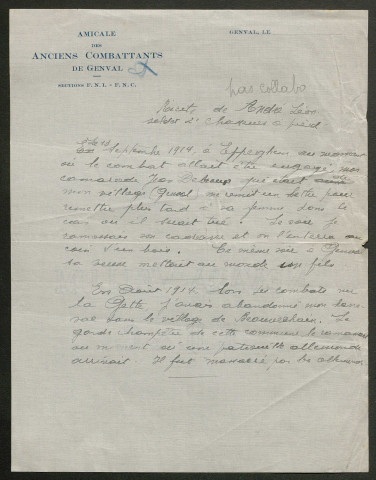 AMICALE
DES
ANCIENS COMBATTANTS
DE GENVAL
SECTIONS F. N. I. - F. N. C.
GENVAL, LE
pas collabo
Récit de Endo Léon
soldat 2e Chasseurs à pied
En Septembre 1914, à Eppeghem au moment
où le combat allait être engagé, mon
camarade qui était
mon village (Genval) me remit un lettre pour
remettre plus tard à sa femme dans le
cas où il serait tué. Le soir je
reconnus son cadavre et on l'enterra au
coin d'un bois. Ce même soir à Genval
sa veuve mettait au monde un fils
En Août 1914. Lors des combats sur
la Gette j'avais abandonné mon havre
sac dans le village de Le
garde champêtre de cette commune le ramassa
au moment où une patrouille allemande
arrivait. Il fut massacré par les allemands